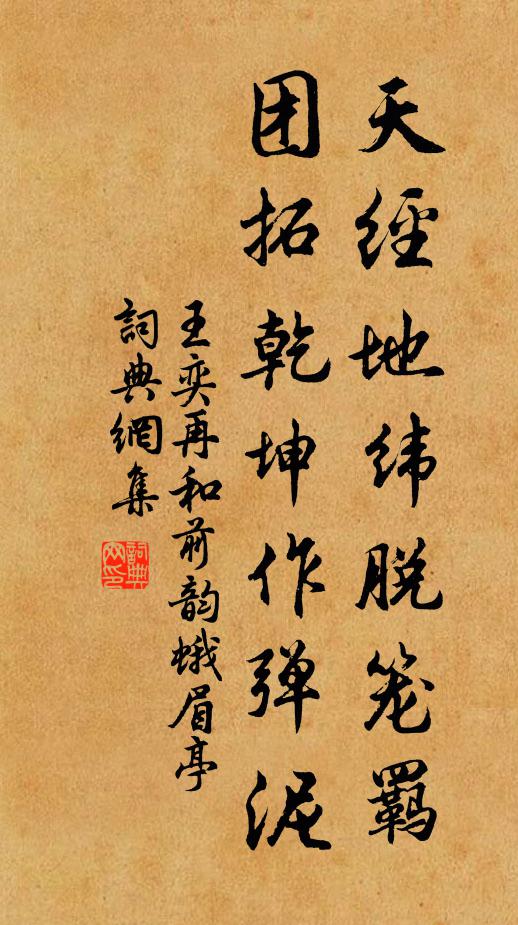 天經地纬脱笼羈
团拓乾坤作弹泥
王奕再和前韵蛾眉亭
詞典網集
詞典
网印